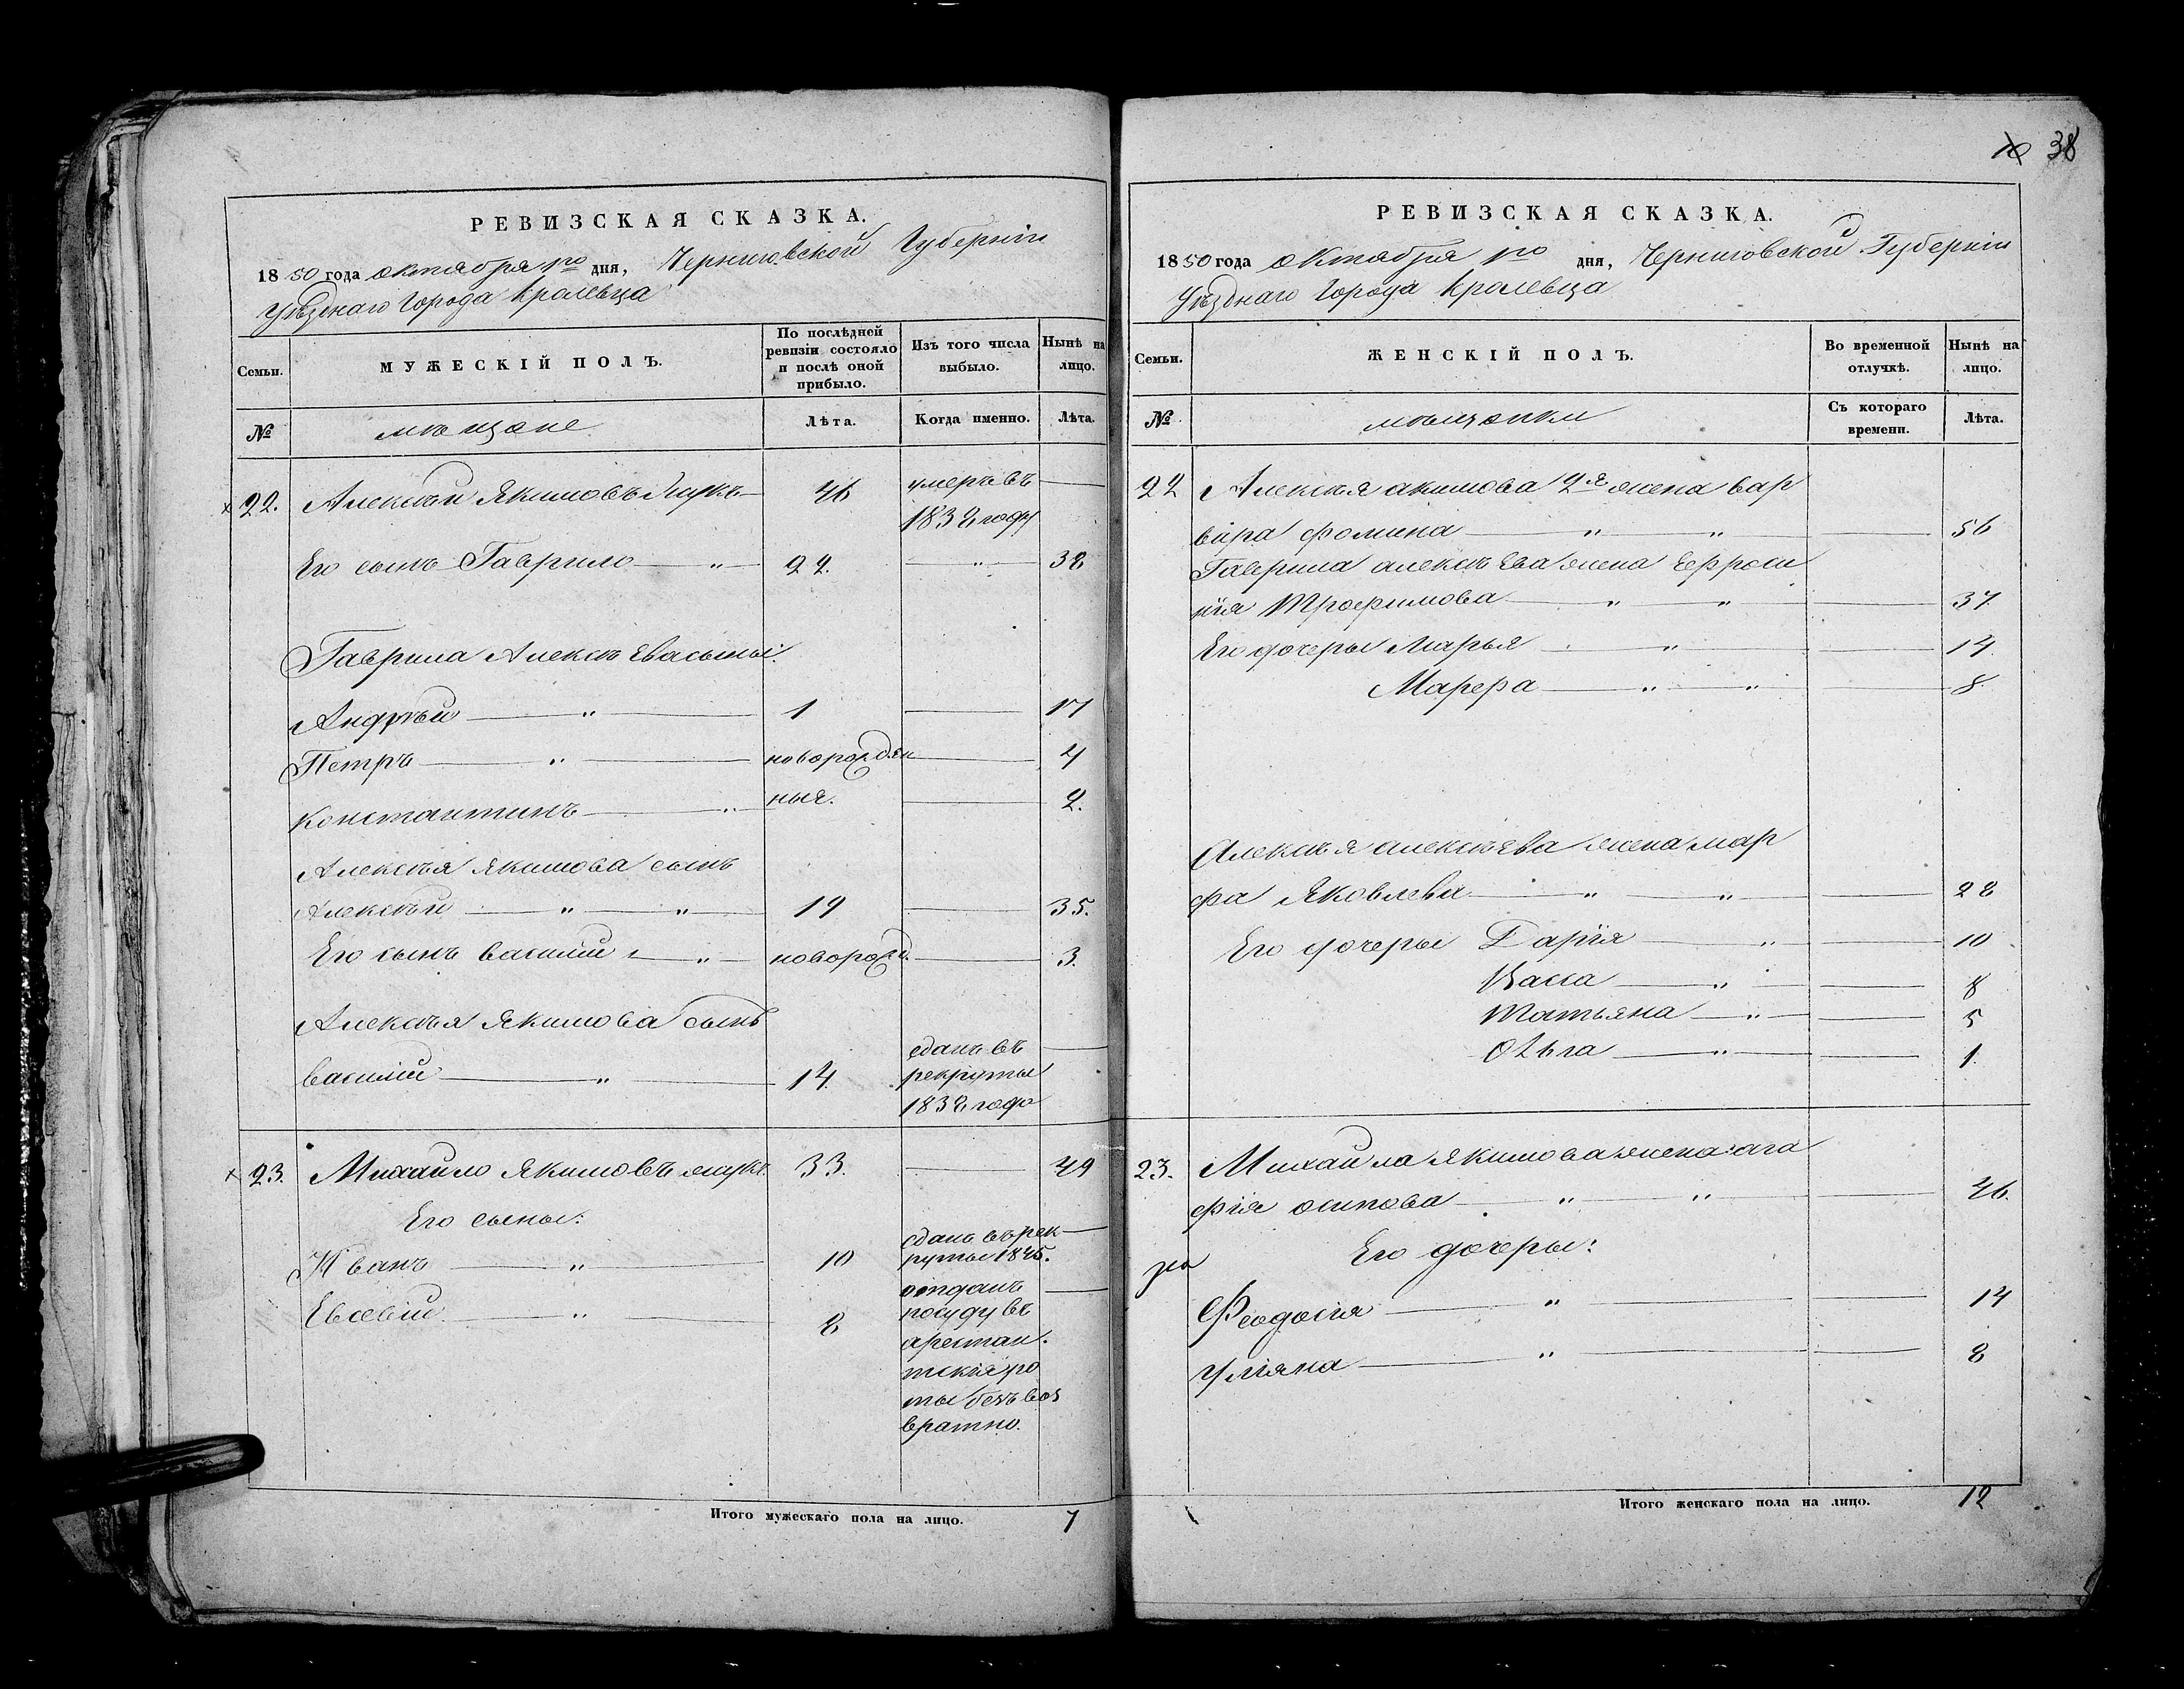 РЕВИЗСКАЯ СКАЗКА.
1850 года октября 1го дня, Черниговской Губерніи
Уѣзднаго Города Кролевца
Семьи.
МУЖЕСКІЙ ПОЛЪ.
По послѣдней ревизіи состояло и послѣ оной прибыло.
Изъ того числа выбыло.
Нынѣ на лицо.
№
мѣщане
Лѣта.
Когда именно.
Лѣта.
22. Алексѣй Якимовъ 46 умеръ въ
1832 году
Его сынъ Гаврило 22. 38
Гаврила Алексѣева сыны:
Андрѣй 1 17
Петръ новорожден 4
Константинъ ныя. 2.
Алексѣя Якимова сынъ
Алексѣй 19 35.
Его сынъ Василий новорожд. 3.
Алексѣя Якимова сынъ
Василий 14. сданъ въ
рекруты
1832 года
23. Михайло Якимовъ 33. 49
Его сыны:
Иванъ 10 сданъ въ рек
руты 1845.
Евсевій 8 отданъ
посуду въ
арестан
тскія ро
ты безъ воз
вратно.
Итого мужескаго пола на лицо. 7
38
РЕВИЗСКАЯ СКАЗКА.
1850 года октября 1го дня, Черниговской Губерніи
Уѣзднаго Города Кролевца
Семьи.
ЖЕНСКІЙ ПОЛЪ.
Во временной отлучкѣ.
Нынѣ на лицо.
№
мѣщанки
Съ котораго времени.
Лѣта.
22 Алексѣя акимова 2я жена вар
вара Фомина 56
Гаврила алексѣева жена Ефроси
нія Трофимова 37.
Его дочеры Марья 14.
Марефа 8.
Алексѣя алексѣева жена мар
фа Яковлева 28
Его дочеры Дарія 10
Васса 8
Татьяна 5
Олга 1.
23. Михайла Якимова жена ага
фія осипова 46.
Его дочеры:
Феодосія 14
Уліяна 8
Итого женскаго пола на лицо. 12